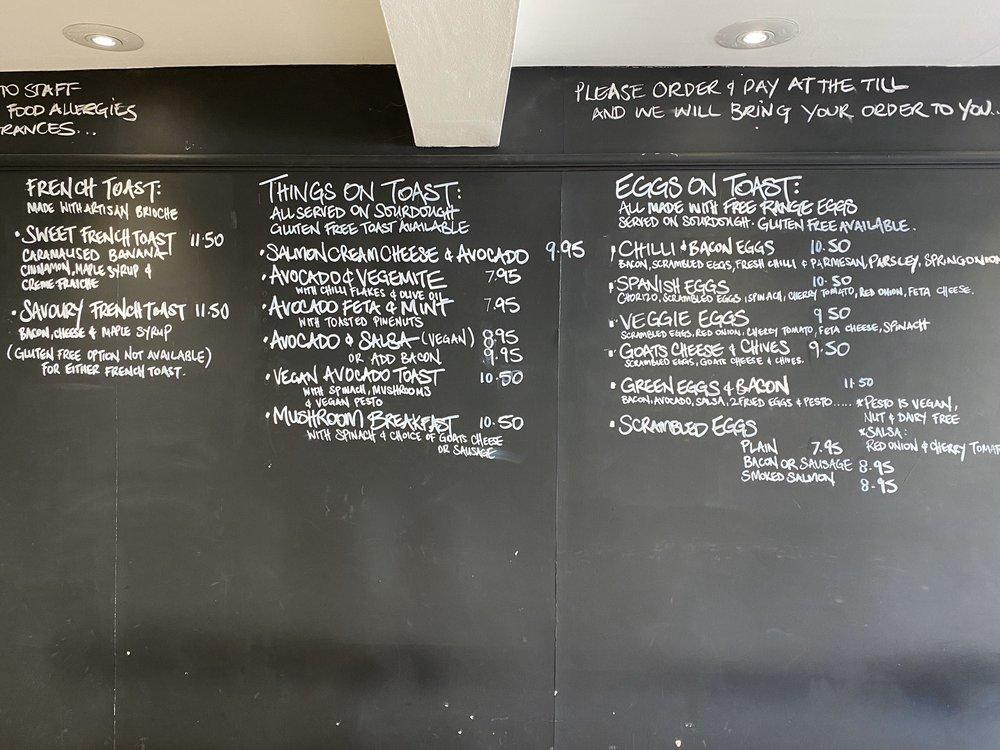 TO STAFF
FOOD ALLERGIES
RANCES...
PLEASE ORDER & PAY AT THE TILL
AND WE WILL BRING YOUR ORDER TO YOU...
FRENCH TOAST:
MADE WITH ARTISAN BRIOCHE
• SWEET FRENCH TOAST 11.50
CARAMALISED BANANA
CINNAMON, MAPLE SYRUP &
CREME FRAICHE
• SAVOURY FRENCH TOAST 11.50
BACON, CHEESE & MAPLE SYRUP
(GLUTEN FREE OPTION NOT AVAILABLE)
FOR EITHER FRENCH TOAST.
THINGS ON TOAST:
ALL SERVED ON SOURDOUGH
GLUTEN FREE TOAST AVAILABLE
• SALMON CREAM CHEESE & AVOCADO 9.95
• AVOCADO & VEGEMITE 7.95
WITH CHILLI FLAKES & OLIVE OIL
• AVOCADO FETA & MINT 7.95
WITH TOASTED PINENUTS
• AVOCADO & SALSA (VEGAN) 8.95
OR ADD BACON 9.95
• VEGAN AVOCADO TOAST 10.50
WITH SPINACH, MUSHROOMS
& VEGAN PESTO
• MUSHROOM BREAKFAST 10.50
WITH SPINACH & CHOICE OF GOATS CHEESE
OR SAUSAGE
EGGS ON TOAST:
ALL MADE WITH FREE RANGE EGGS
SERVED ON SOURDOUGH. GLUTEN FREE AVAILABLE.
• CHILLI & BACON EGGS 10.50
BACON, SCRAMBLED EGGS, FRESH CHILLI & PARMESAN, PARSLEY, SPRING ONION
• SPANISH EGGS 10.50
CHORIZO, SCRAMBLED EGGS, SPINACH, CHERRY TOMATO, RED ONION, FETA CHEESE.
• VEGGIE EGGS 9.50
SCRAMBLED EGGS, RED ONION, CHERRY TOMATO, FETA CHEESE, SPINACH
• GOATS CHEESE & CHIVES 9.50
SCRAMBLED EGGS, GOATS CHEESE & CHIVES.
• GREEN EGGS & BACON 11.50
BACON, AVOCADO, SALSA, 2 FRIED EGGS & PESTO.....
* PESTO IS VEGAN,
NUT & DAIRY FREE
* SALSA:
RED ONION & CHERRY TOMAT
• SCRAMBLED EGGS
PLAIN 7.95
BACON OR SAUSAGE 8.95
SMOKED SALMON 8.95